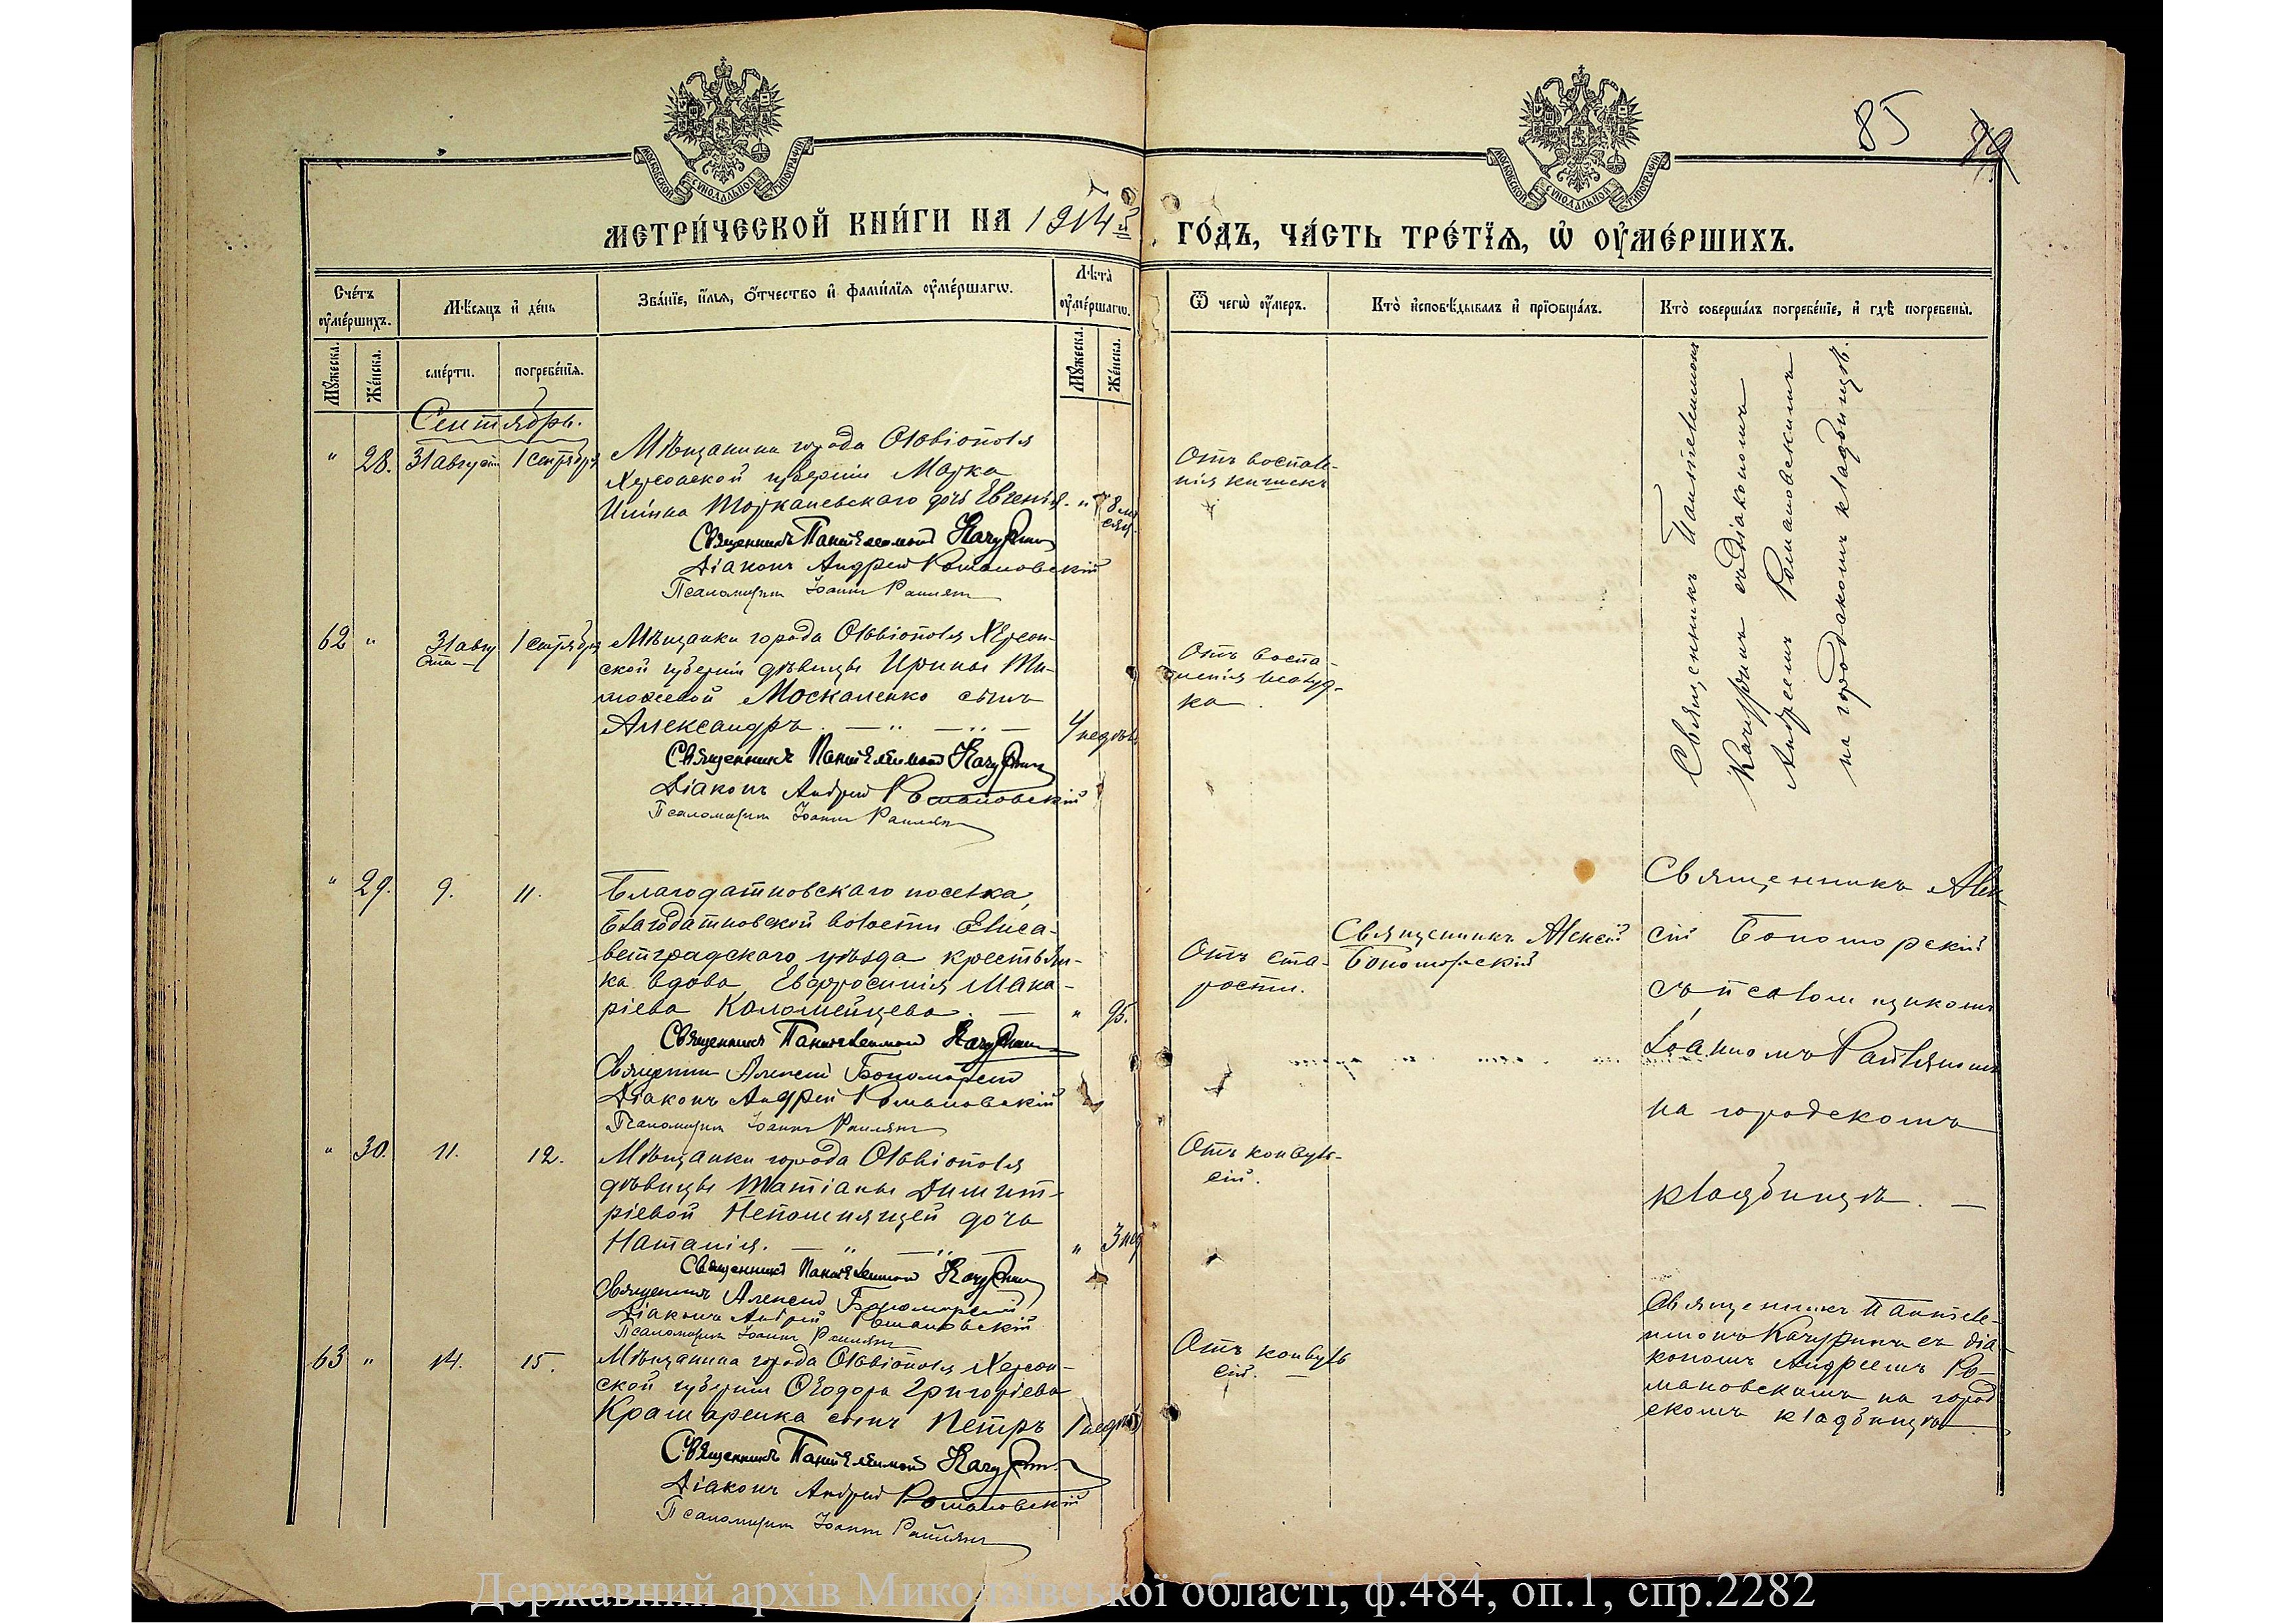 85
МОСКОВСКОЙ СѴНОДАЛЬНОЙ ТИПОГРАФІИ
МОСКОВСКОЙ СѴНОДАЛЬНОЙ ТИПОГРАФІИ
МЕТРИ́ЧЕСКОЙ КНИ́ГИ НА 1914й ГО́ДЪ, ЧА́СТЬ ТРЕ́ТЇѦ, Ѽ ОУ҆МЕ́РШИХЪ.
Сче́тъ оу҆ме́ршихъ.
Мꙋ́жеска.
Же́нска.
Мѣ́сяцъ и҆ де́нь
сме́рти.
погребе́нїѧ.
Зва́нїе, и҆́мѧ, ѻ҆́тчество и҆ фами́лїѧ оу҆ме́ршагѡ.
Лѣ́та оу҆ме́ршагѡ.
Мꙋ́жеска.
Же́нска.
Ѿ чегѡ̀ оу҆́меръ.
Кто̀ и҆сповѣ́дывалъ и҆ прїѡбща́лъ.
Кто̀ соверша́лъ погребе́нїе, и҆ гдѣ̀ погребены̀.
Сентябрь.
" 28. 31 августа 1 сентября
Мѣщанина города Ольвіополя
Херсонской губерніи Марка
Ильина дочь Евгенія. " 8 мѣ
сяц.
Священникъ Пантелеимонъ Качуринъ
Діаконъ Андрей Романовскій
Псаломщикъ Іоаннъ Раилянъ
Отъ воспале-
нія кишекъ
Священникъ Пантелеимонъ
Качуринъ съ діакономъ
Андреемъ Романовскимъ
на городскомъ кладбищѣ.
62 " 31 авгу
ста 1 сентября
Мѣщанки города Ольвіополя Херсон-
ской губерніи дѣвицы Ирины Ти-
моѳеевой Москаленко сынъ
Александръ. — " — " — 4 недѣли
Священникъ Пантелеимонъ Качуринъ
Діаконъ Андрей Романовскій
Псаломщикъ Іоаннъ Раилянъ
Отъ воспа-
ленія желуд-
ка.
" 29. 9. 11.
Благодатновскаго поселка,
Благодатновской волости Елиса-
ветградскаго уѣзда крестьян-
ка вдова Евфросинія Мака-
ріева Коломейцева. — " 95.
Священникъ Пантелеимонъ Качуринъ
Священникъ Алексій Бономорскій
Діаконъ Андрей Романовскій
Псаломщикъ Іоаннъ Раилянъ
Отъ ста-
рости.
Священникъ Алексій
Бономорскій
Священникъ Алек
сій Бономорскій
съ псаломщикомъ
Іоанномъ Раиляномъ
на городскомъ
кладбищѣ. —
" 30. 11. 12.
Мѣщанки города Ольвіополя
дѣвицы Татіаны Димит-
ріевой Непомнящей дочь
Наталія. — " — " — " 3 нед
Священникъ Пантелеимонъ Качуринъ
Священникъ Алексій Бономорскій
Діаконъ Андрей Романовскій
Псаломщикъ Іоаннъ Раилянъ
Отъ конвуль-
сій.
63 " 14. 15.
Мѣщанина города Ольвіополя Херсон-
ской губерніи Ѳеодора Григоріева
Крамаренка сынъ Петръ 1 недѣли
Священникъ Пантелеимонъ Качуринъ
Діаконъ Андрей Романовскій
Псаломщикъ Іоаннъ Раилянъ
Отъ конвуль
сій. —
Священникъ Пантеле-
имонъ Качуринъ съ діа-
кономъ Андреемъ Ро-
мановскимъ на город
скомъ кладбищѣ
Державний архів Миколаївської області, ф.484, оп.1, спр.2282